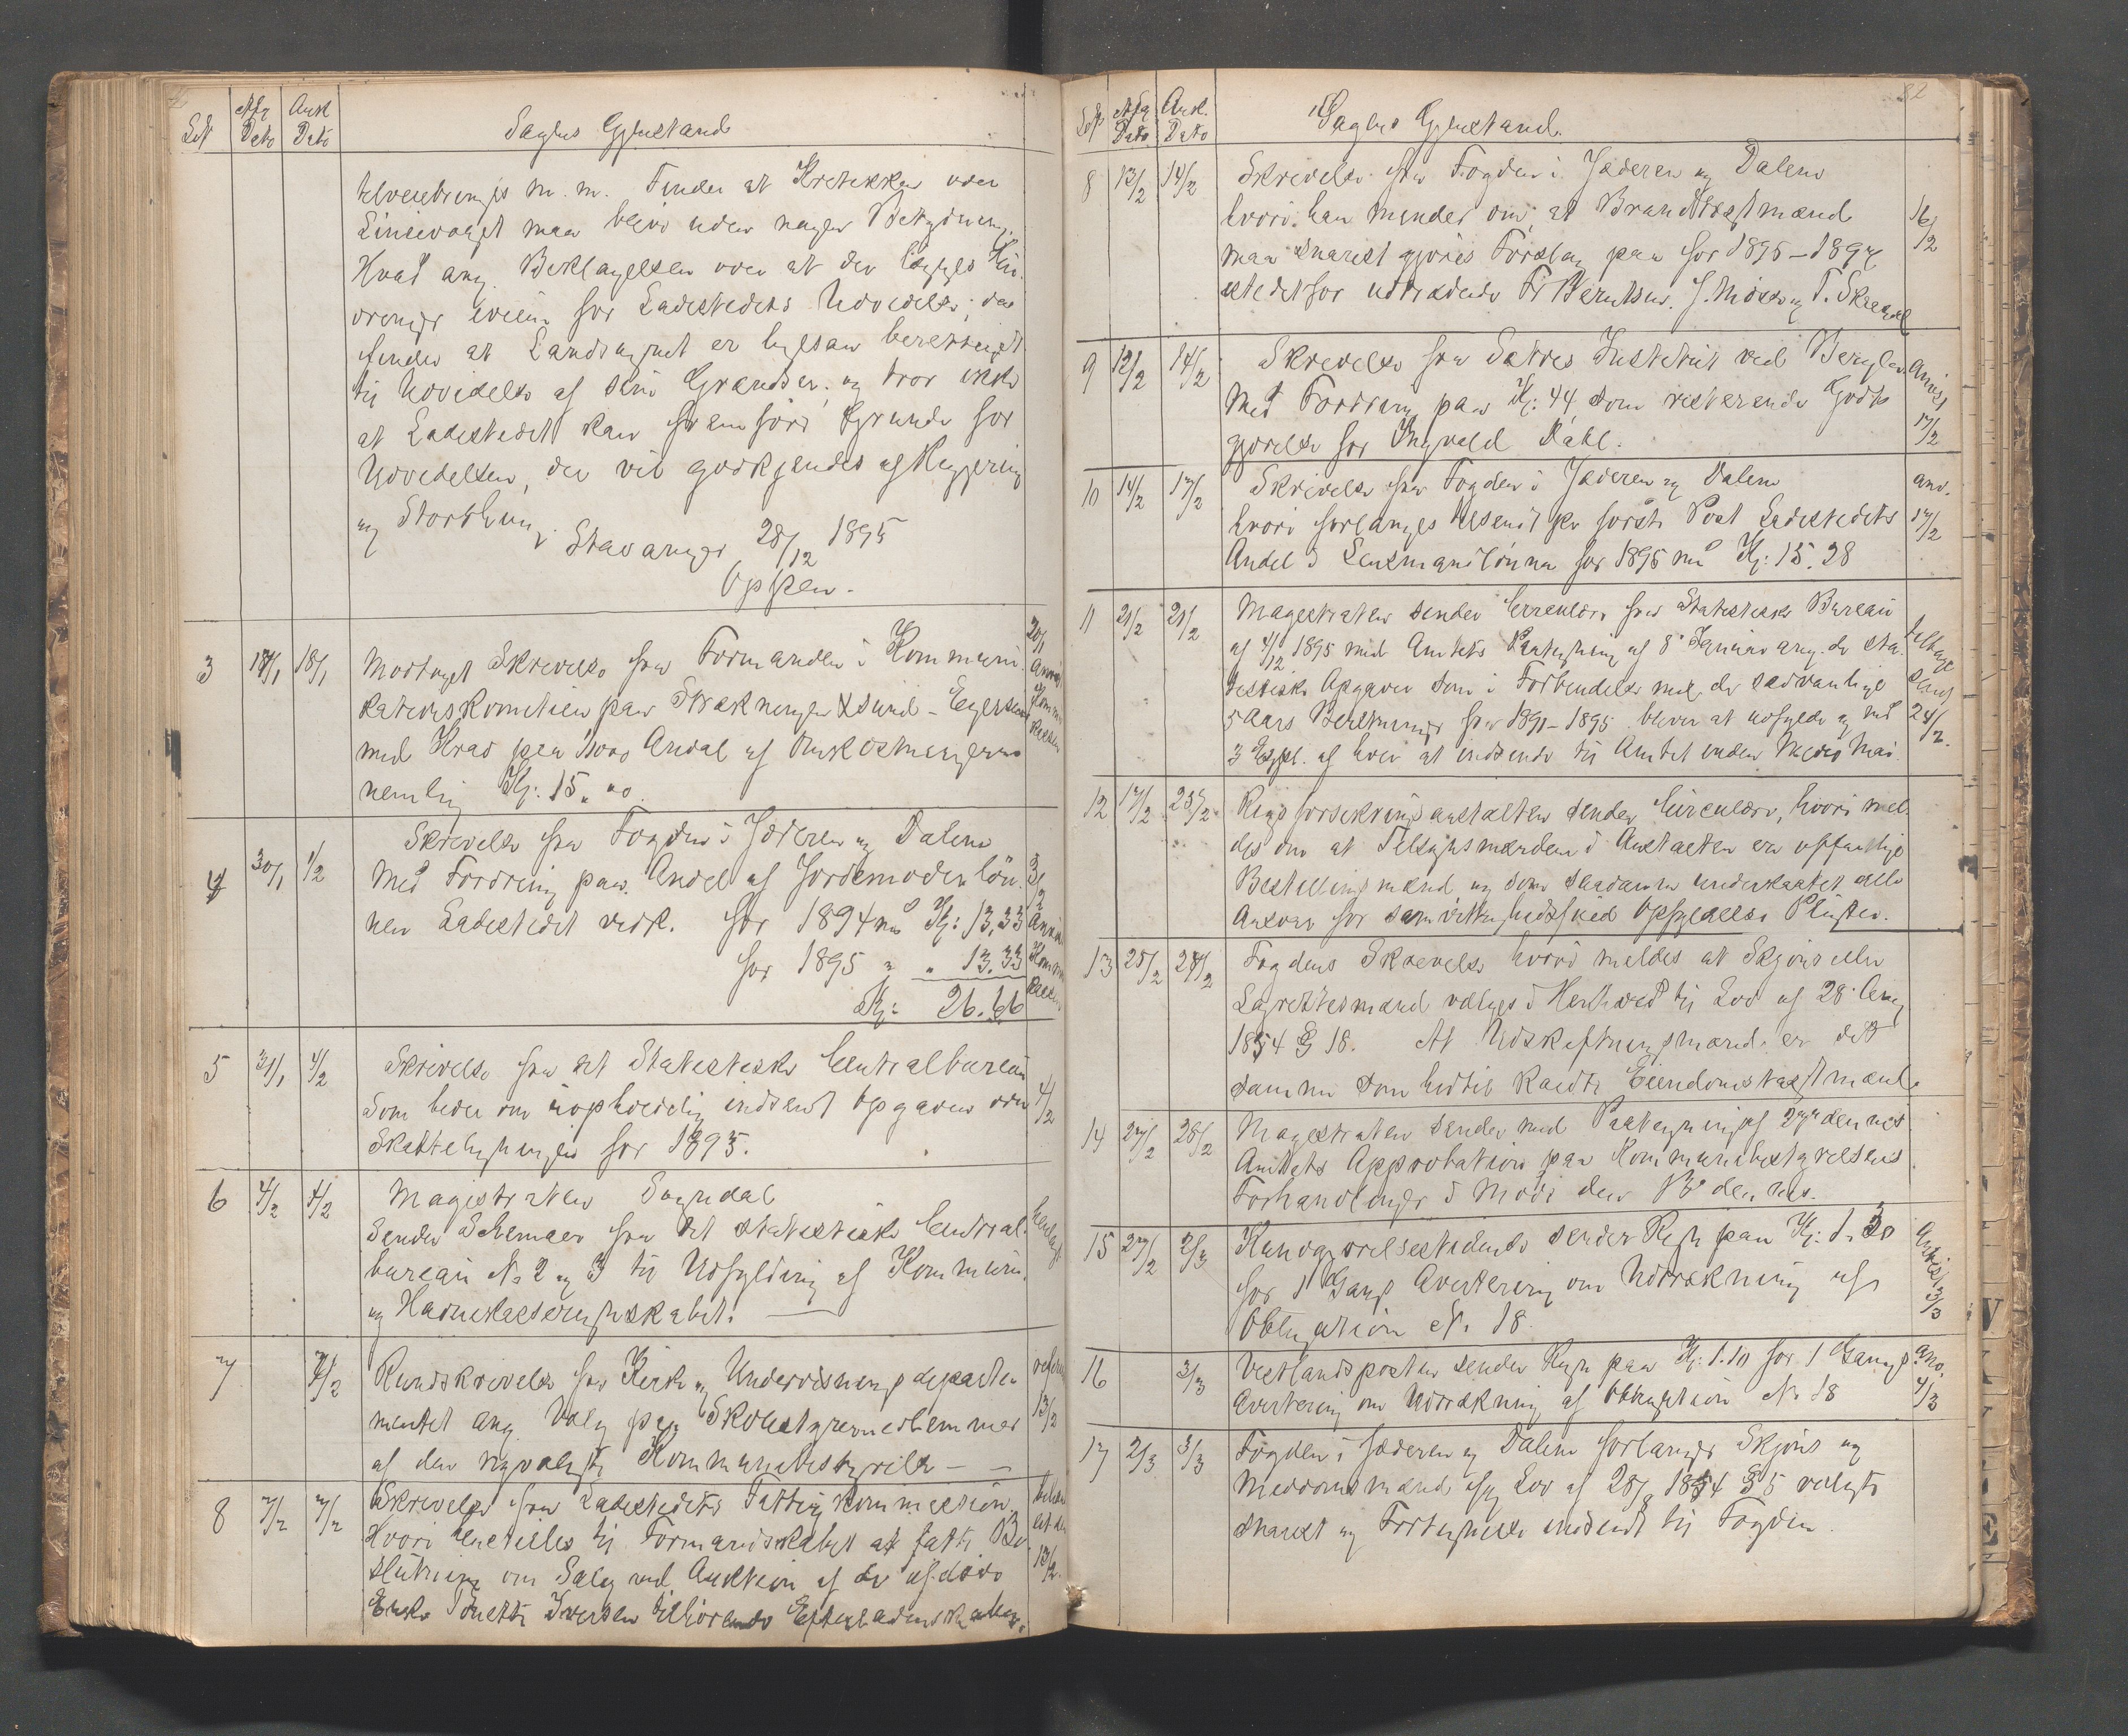 Afg Ank
Dato Dato Sagens Gjenstand
m. m. Finder at Kritikken over
Linievalget maa blive uden nogen Betydning.
Hvad ang. Beklagelsen over at der lægges Hin-
dringer iveien for Ladestedets Udvidelse, da
findes at Landsognet er ligesaa berettiget
til Udvidelse af sine Grændser, og tror ikke
at Ladestedet kan fremføre Grunde for
Udvidelsen, der vil godkjendes af Regjering
og Storthing.
Stavanger 28/12 1895
3 18/1 18/1 Modtaget Skrivelse fra Formanden i Kommuni-
kationskomiteen paa Strækningen - Egersund
med Krav paa vor Andel af Omkostningerne
nemlig Kr: 15.00.
4 30/1 1/2 Skrivelse fra Fogden i Jæderen og Dalene
Med Fordring paa Andel af Jordemoderløn-
nen Ladestedet vedk. for 1894 med Kr: 13,33
for 1895 " " 13.33
Kr: 26.66
5 31/1 4/2 Skrivelse fra det Statistiske Centralbureau 4/2
Som beder om uopholdelig indsendt Opgaver over
Skatteligningen for 1895.
6 4/2 4/2 Magistraten Sogndal
Sender Schemaer fra det statistiske Central-
bureau No 2 og 3 til Udfylding af Kommune
og Havnekasseregnskabet.
7 7/2 Rundskrivelse fra Kirke og Undervisningsdeparte-
mentet ang. Valg paa Skolestyremedlemmer 13/2
af den nyvalgte Kommunebestyrelse
8 7/2 7/2 Skrivelse fra Ladestedets Fattigkommission
Hvori henstilles til Formandskabet at fatte Be-
slutning om Salg ved Auktion af de afdøde 13/2
Enke Iversen tilhørende
82
Afg Ank.
Dato Dato Sagens Gjenstand.
8 13/2 14/2 Skrivelse fra Fogden i Jæderen og Dalene
hvori han minder om, at Brandtaxtmænd 16/2
maa snarest gjøres Forslag paa for 1895-1897
istedetfor udtrædende Fr Berntsen. J. Moss og T.
9 12/2 14/2 Skrivelse fra Institut ved Bergen
Med Fordring paa Kr: 44 som resterende Godt-
gjørelse for Ingvald Dahl. 17/2
10 14/2 17/2 Skrivelse fra Fogden i Jæderen og Dalene anv.
hvori forlanges tilsendt pr første Post Ladestedets 17/2
Andel i Lensmandslønnen for 1895 med Kr: 15.28
11 21/2 21/2 Magistraten sender Circulære fra Statistiske Bureau
af 4/12 1895 med Amtets Paategning af 8 Januar ang. de sta-
tistiske Opgaver som i Forbindelse med de sædvanlige
5 Aars Beretninger for 1891-1895 bliver at udfylde og med 24/2.
3 Expl. af hver at indsende til Amtet inden Medio Mai.
12 17/2 25/2 Rigsforsikringsanstalten sender Circulære, hvori mel-
des om at Tilsynsmændene i Anstalten er offentlige
Bestillingsmænd og som saadanne underkastet alle
Ansvar for samvittighedsfuld Opfyldelse Pligter.
13 25/2 27/2 Fogdens Skrivelse hvori meldes at Skjøns eller
Lagrettesmænd vælges i Henhold til Lov af 28 Aug
1854 § 18. At Udskiftningsmænd er det
samme som hidtil kaldte Eiendomstaxtmænd
14 27/2 28/2 Magistraten sender med Paategning af 27de dennes
Amtets Approbation paa Kommunebestyrelsens
Forhandlinger i Møde den 13de dennes.
15 27/2 2/3 Kundgjørelsestidende sender Regn paa Kr: 1.30
for 1 Gangs Avertering om Udtrækning af 3/3
Obligation No 18.
16 3/3 Vestlandsposten sender Regn paa Kr: 1.10 for 1 Gangs anv.
Avertering om Udtrækning af Obligation No 18 4/3
17 2/3 3/3 Fogden i Jæderen og Dalene forlanger Skjøns og
Meddomsmænd ifg Lov af 28/8 1854 § 5 valgt
snarest og Fortegnelse indsendt til Fogden.